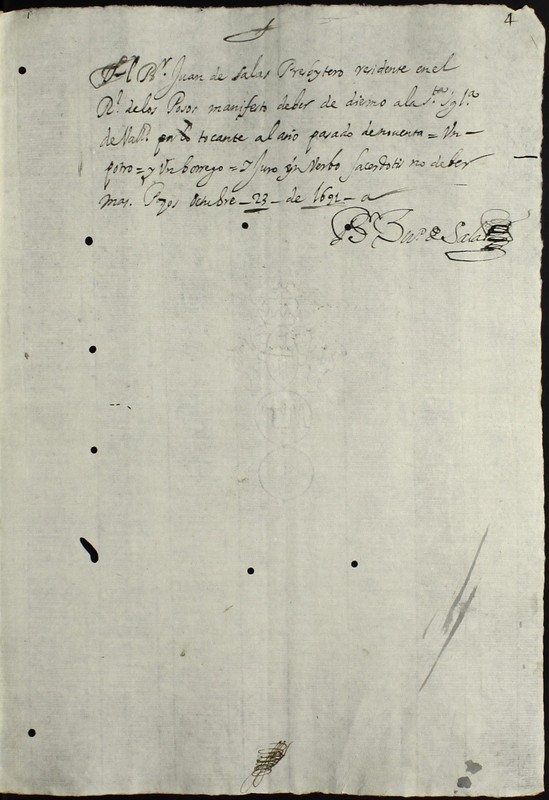 4
El Br. Juan de Salas Presbytero residente en el
Rl. de los Posos manifesto deber de diesmo a la Sta. Yglª
de Vallid. por lo tocante al año pasado de nouenta = Vn
potro = y Vn borrego = y Juro in Verbo Sacerdotis no deber
mas. Pozos Octubre - 23 - de 1691 - a
Br. Juº. de Salas